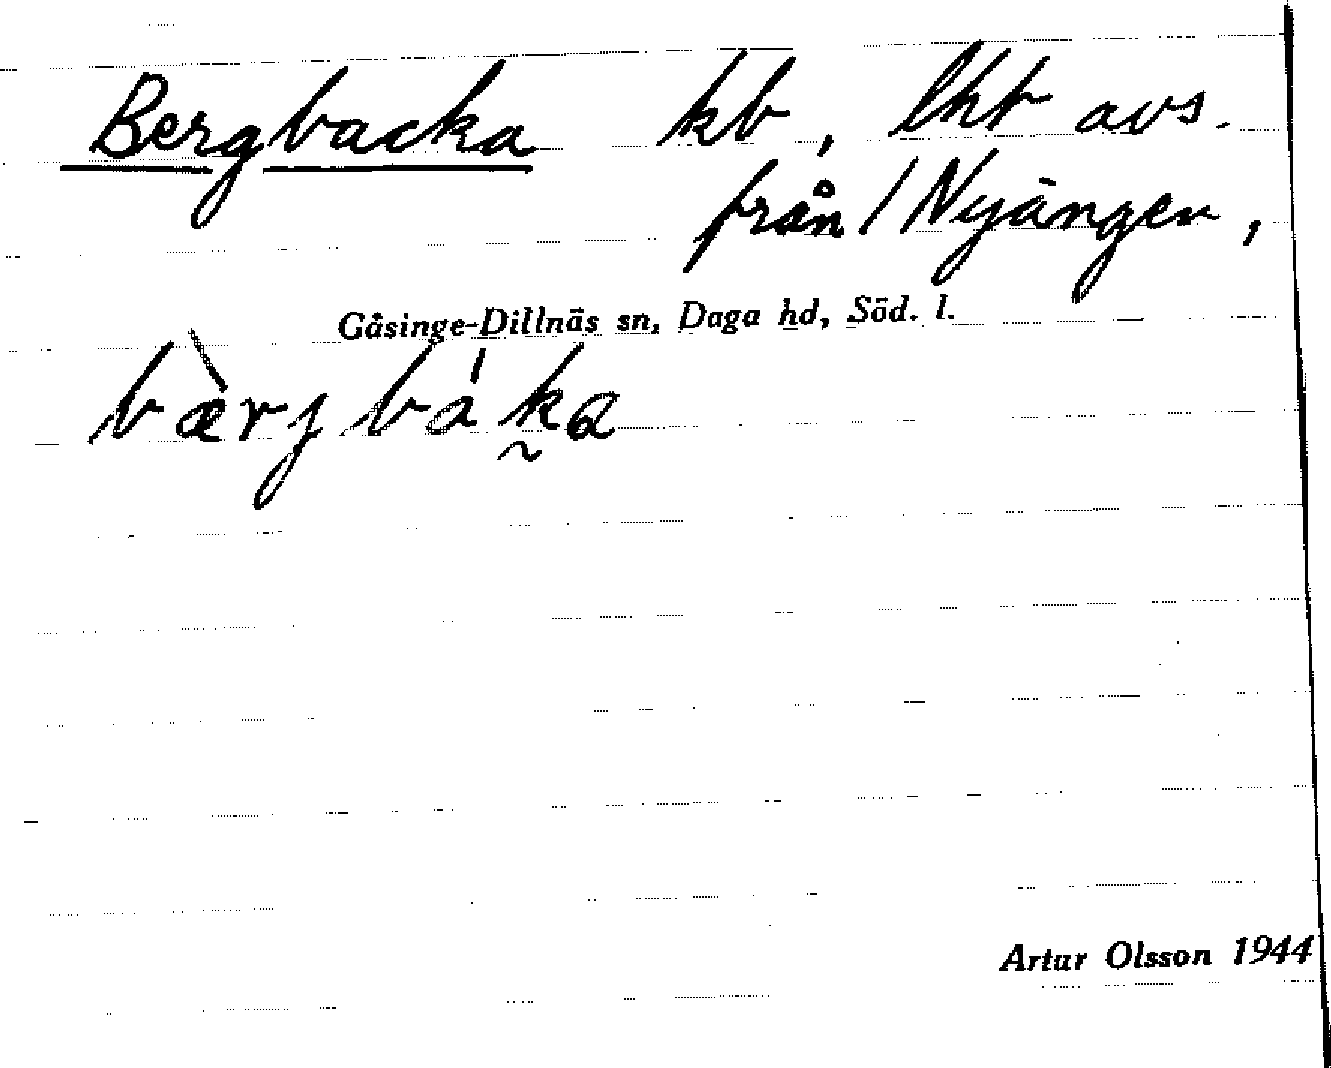 Bergbacka kb, lht avs.
från / Nyängen,
Gåsinge-Dillnäs sn, Daga hd, Söd. l.
bæ̀rjbák̰a
Artur Olsson 1944